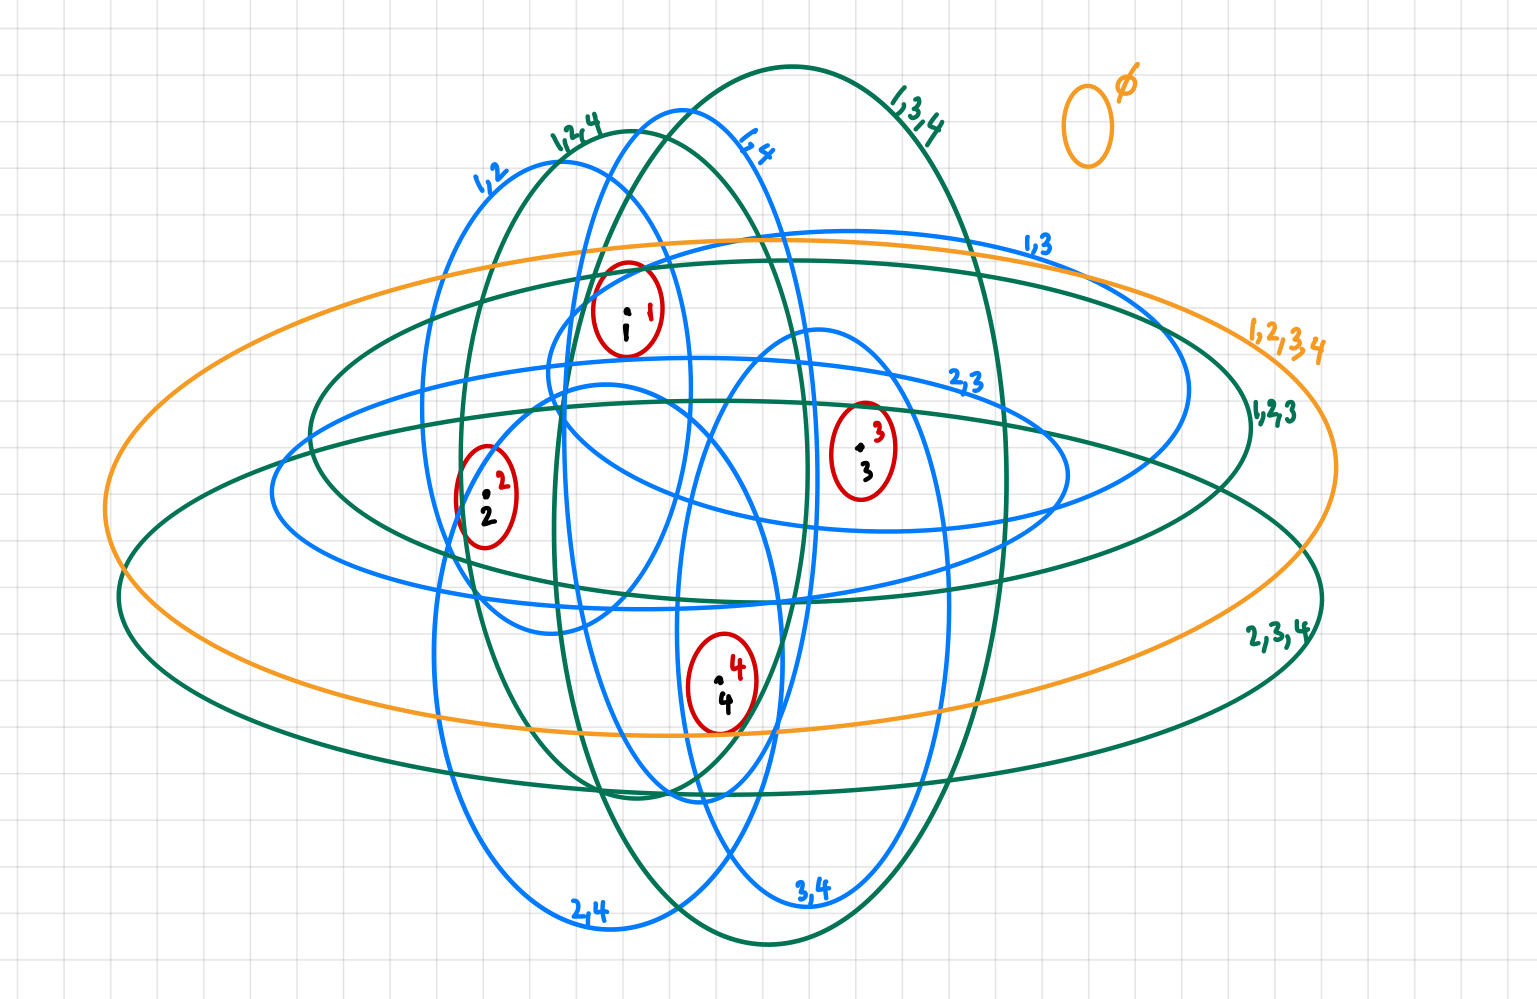 ∅
1,3,4
1,2,4
1,4
1,2
1,3
1
1
1,2,3,4
2,3
1,2,3
3
3
2
2
2,3,4
4
4
3,4
2,4